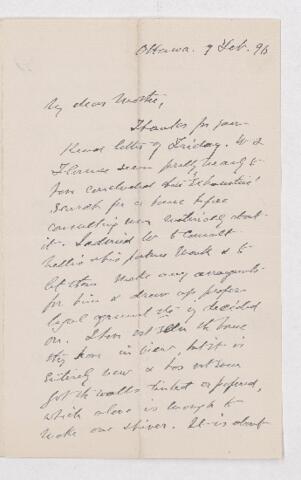 Ottawa. 9 Feb. 96
My dear Mother,
Thanks for your
kind letter of Friday. W. &
Florence seem pretty nearly to
have concluded their "exhaustive"
search for a house before
consulting men anything about
it. I advised W. to consult
his partner Monk & to
let them make any arrangements
for him & draw up proper
legal agreement when is decided
on. I have not seen the house
they have in view, but it is
entirely new & has not even
got the walls tinted or papered,
which alone is enough to
make one shiver. It is about